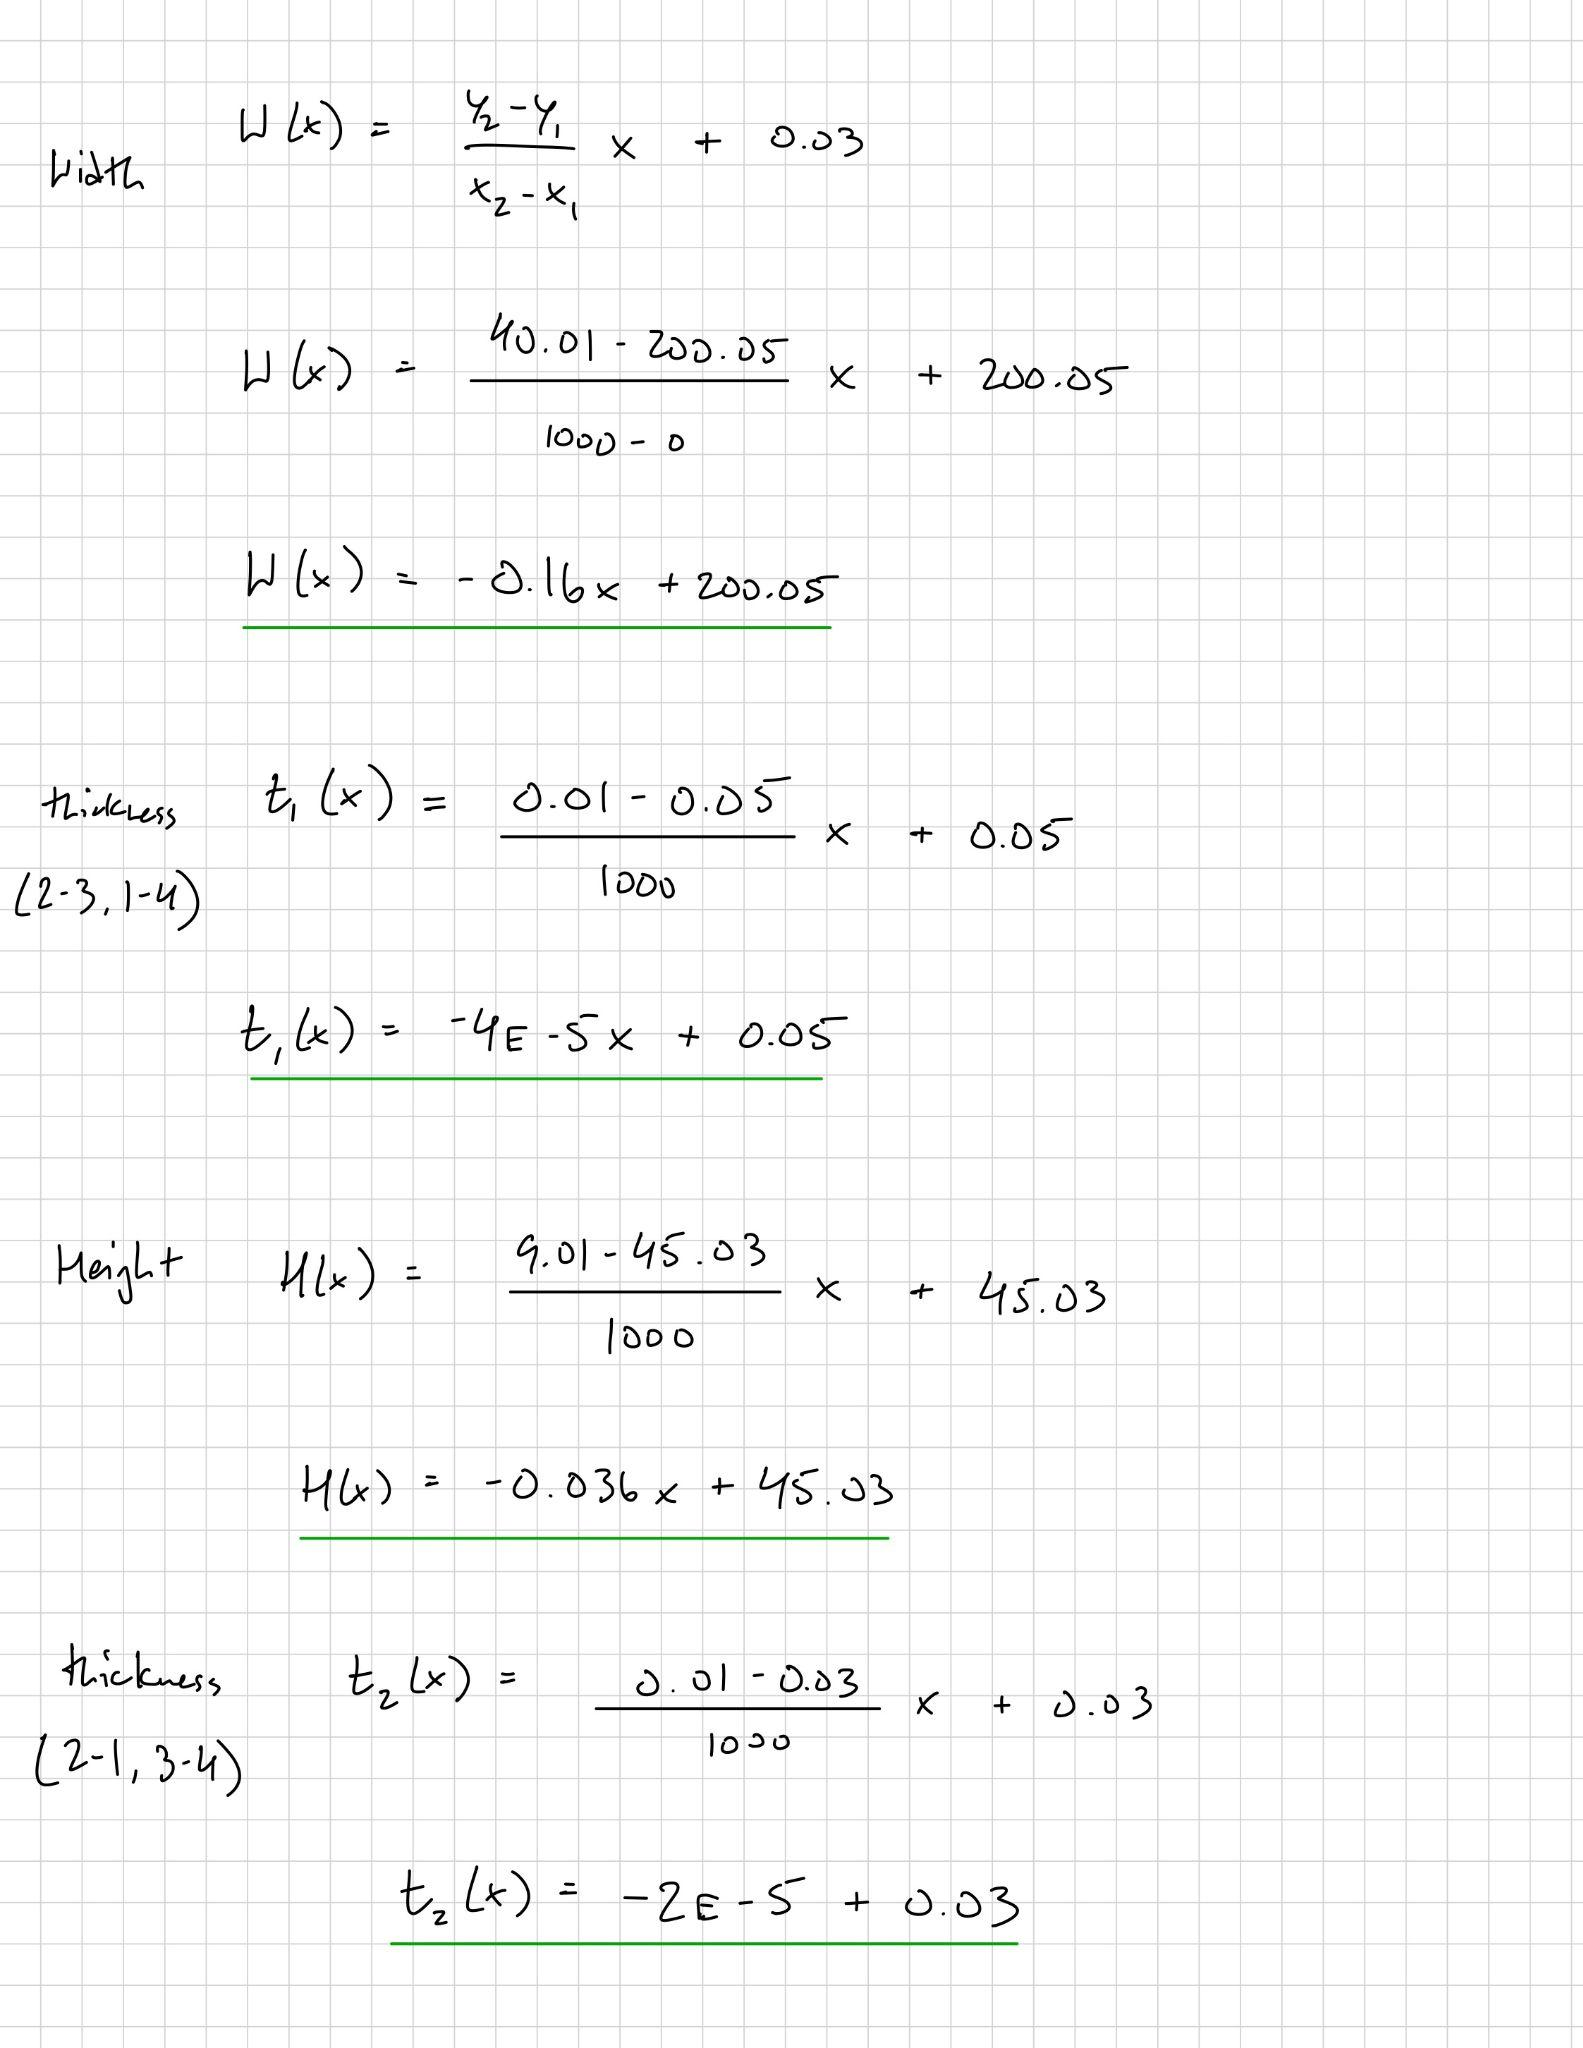 Width W(x) = (y₂ - y₁)/(x₂ - x₁) x + 0.03
W(x) = (40.01 - 200.05)/(1000 - 0) x + 200.05
W(x) = -0.16x + 200.05
thickness (2-3, 1-4) t₁(x) = (0.01 - 0.05)/1000 x + 0.05
t₁(x) = -4E-5x + 0.05
Height H(x) = (9.01 - 45.03)/1000 x + 45.03
H(x) = -0.036x + 45.03
thickness (2-1, 3-4) t₂(x) = (0.01 - 0.03)/1000 x + 0.03
t₂(x) = -2E-5 + 0.03